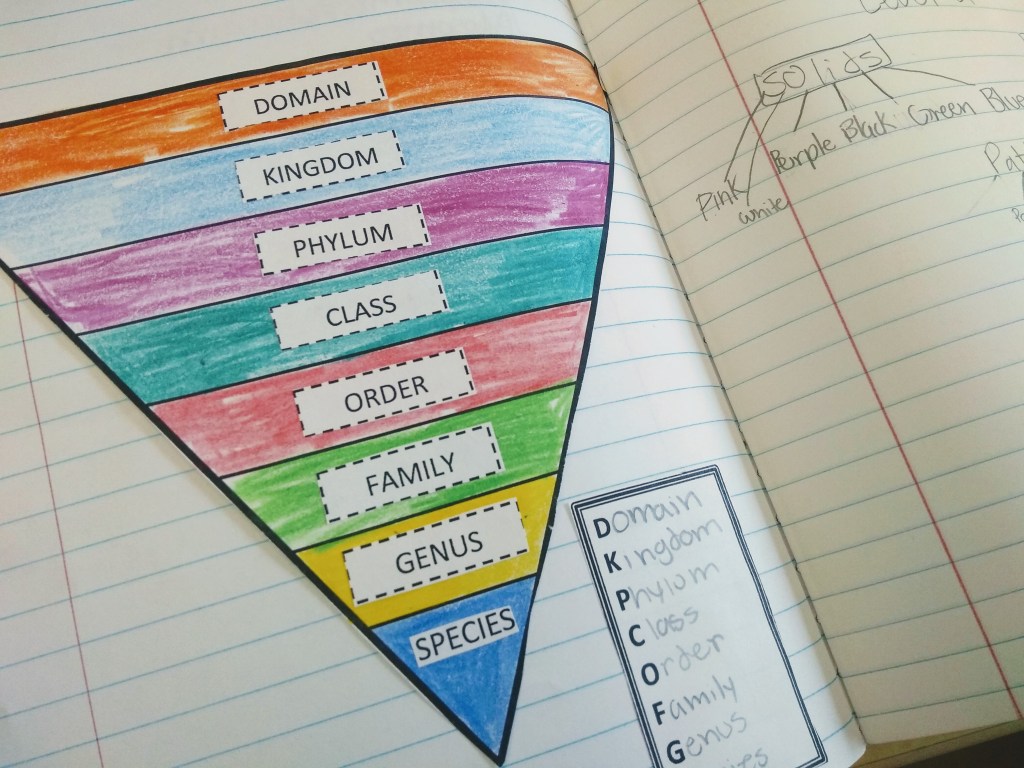 DOMAIN
KINGDOM
PHYLUM
CLASS
ORDER
FAMILY
GENUS
SPECIES
Domain
Kingdom
Phylum
Class
Order
Family
Genus
Solids
Purple Black Green Blue
Pink
White